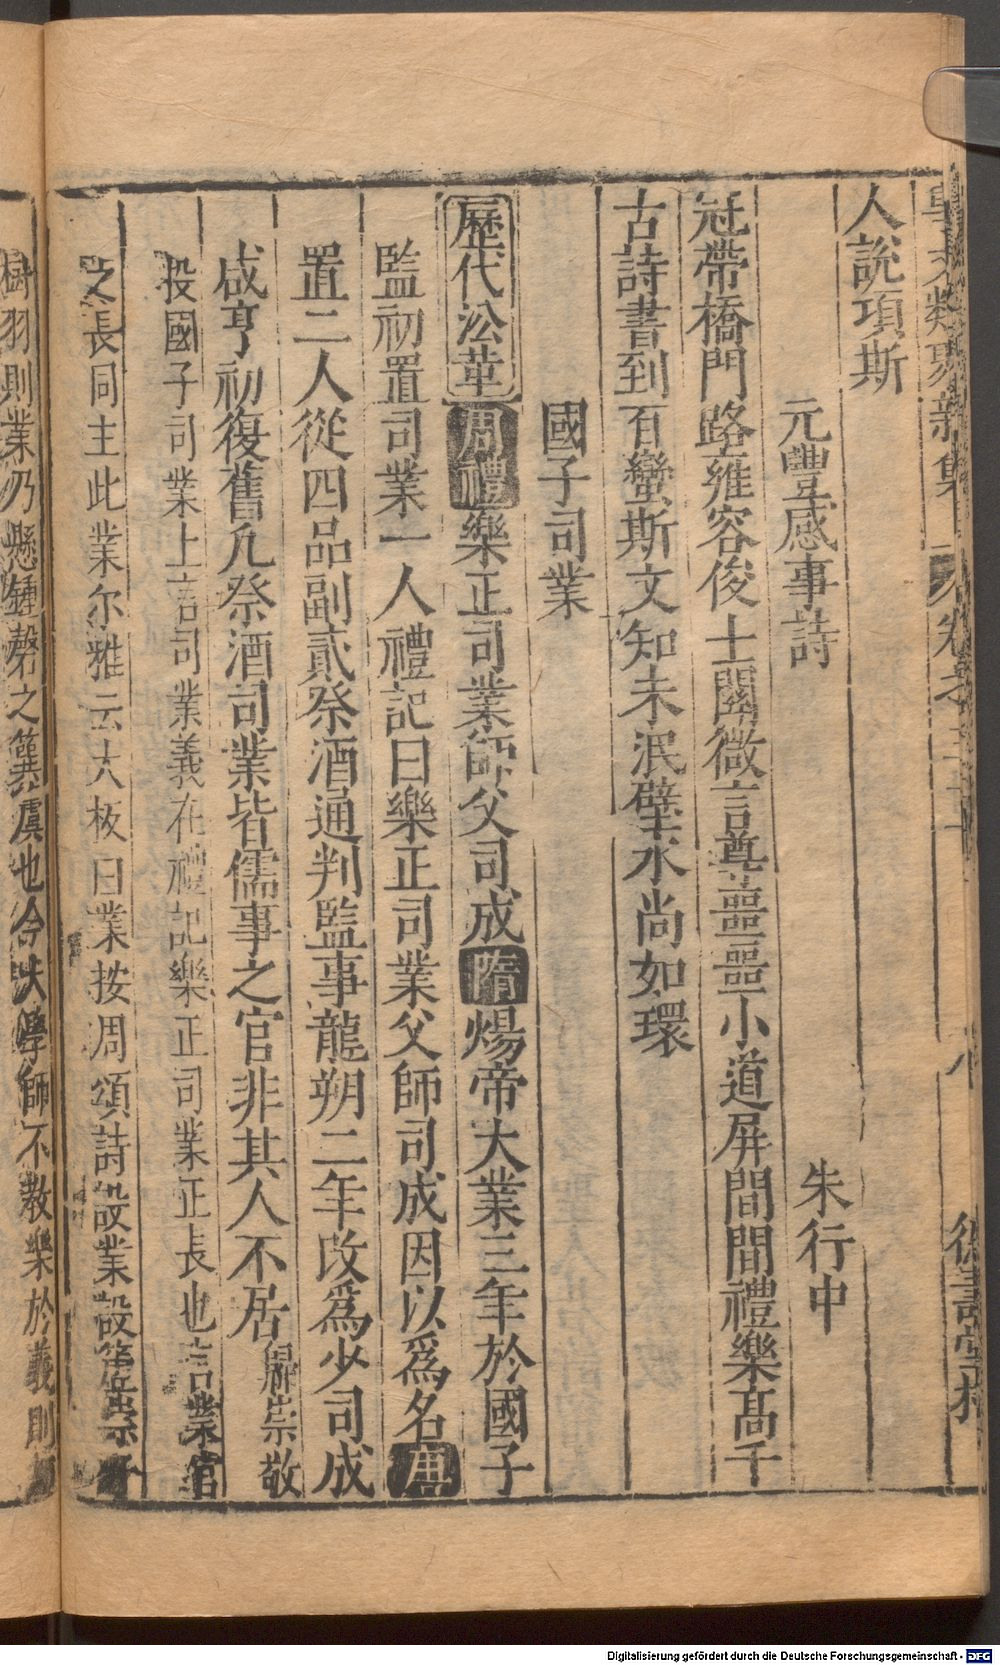 事文類聚新集 卷之三十
德壽堂梓
人說項斯
元豐感事詩 朱行中
冠帶橋門路雍容俊士闢微言尊噩噩小道屏間間禮樂高千
古詩書到百蠻斯文知未泯壁水尚如環
國子司業
歷代㳂革 周禮樂正司業師父司成隋煬帝大業三年於國子
監初置司業一人禮記曰樂正司業父師司成因以爲名唐
置二人從四品副貳祭酒通判監事龍朔二年改爲少司成
咸亨初復舊凡祭酒司業皆儒事之官非其人不居歸崇敬
授國子司業上言司業義在禮記樂正司業正長也言業官
之長同主此業尔雅云大板曰業按周頌詩設業設簴崇牙
樹羽則業乃懸鍾磬之簨虡也今太學師不教樂於義則
Digitalisierung gefördert durch die Deutsche Forschungsgemeinschaft - DFG